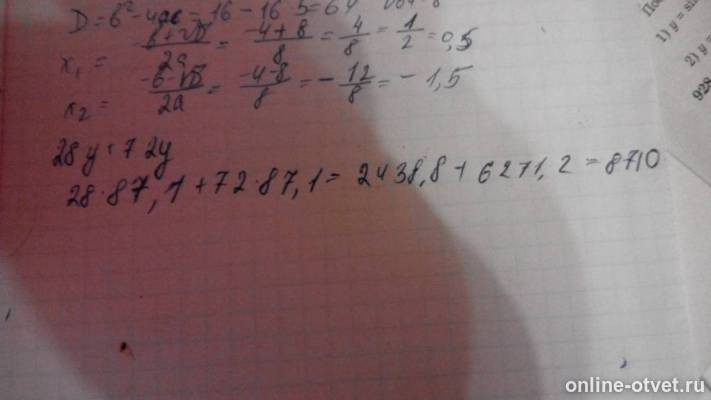 D = b² - 4ac = 16 - 16·5 = 64
x₁ = (-b+√D)/2a = (-4+8)/8 = 4/8 = 1/2 = 0,5
x₂ = (-b-√D)/2a = (-4-8)/8 = -12/8 = -1,5
28y+72y
28·87,1+72·87,1= 2438,8+6271,2=8710
1) y = sin
2) y =
928
online-otvet.ru